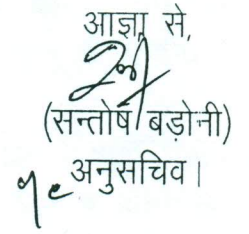 आज्ञा से,
(सन्तोष बड़ोनी)
अनुसचिव।